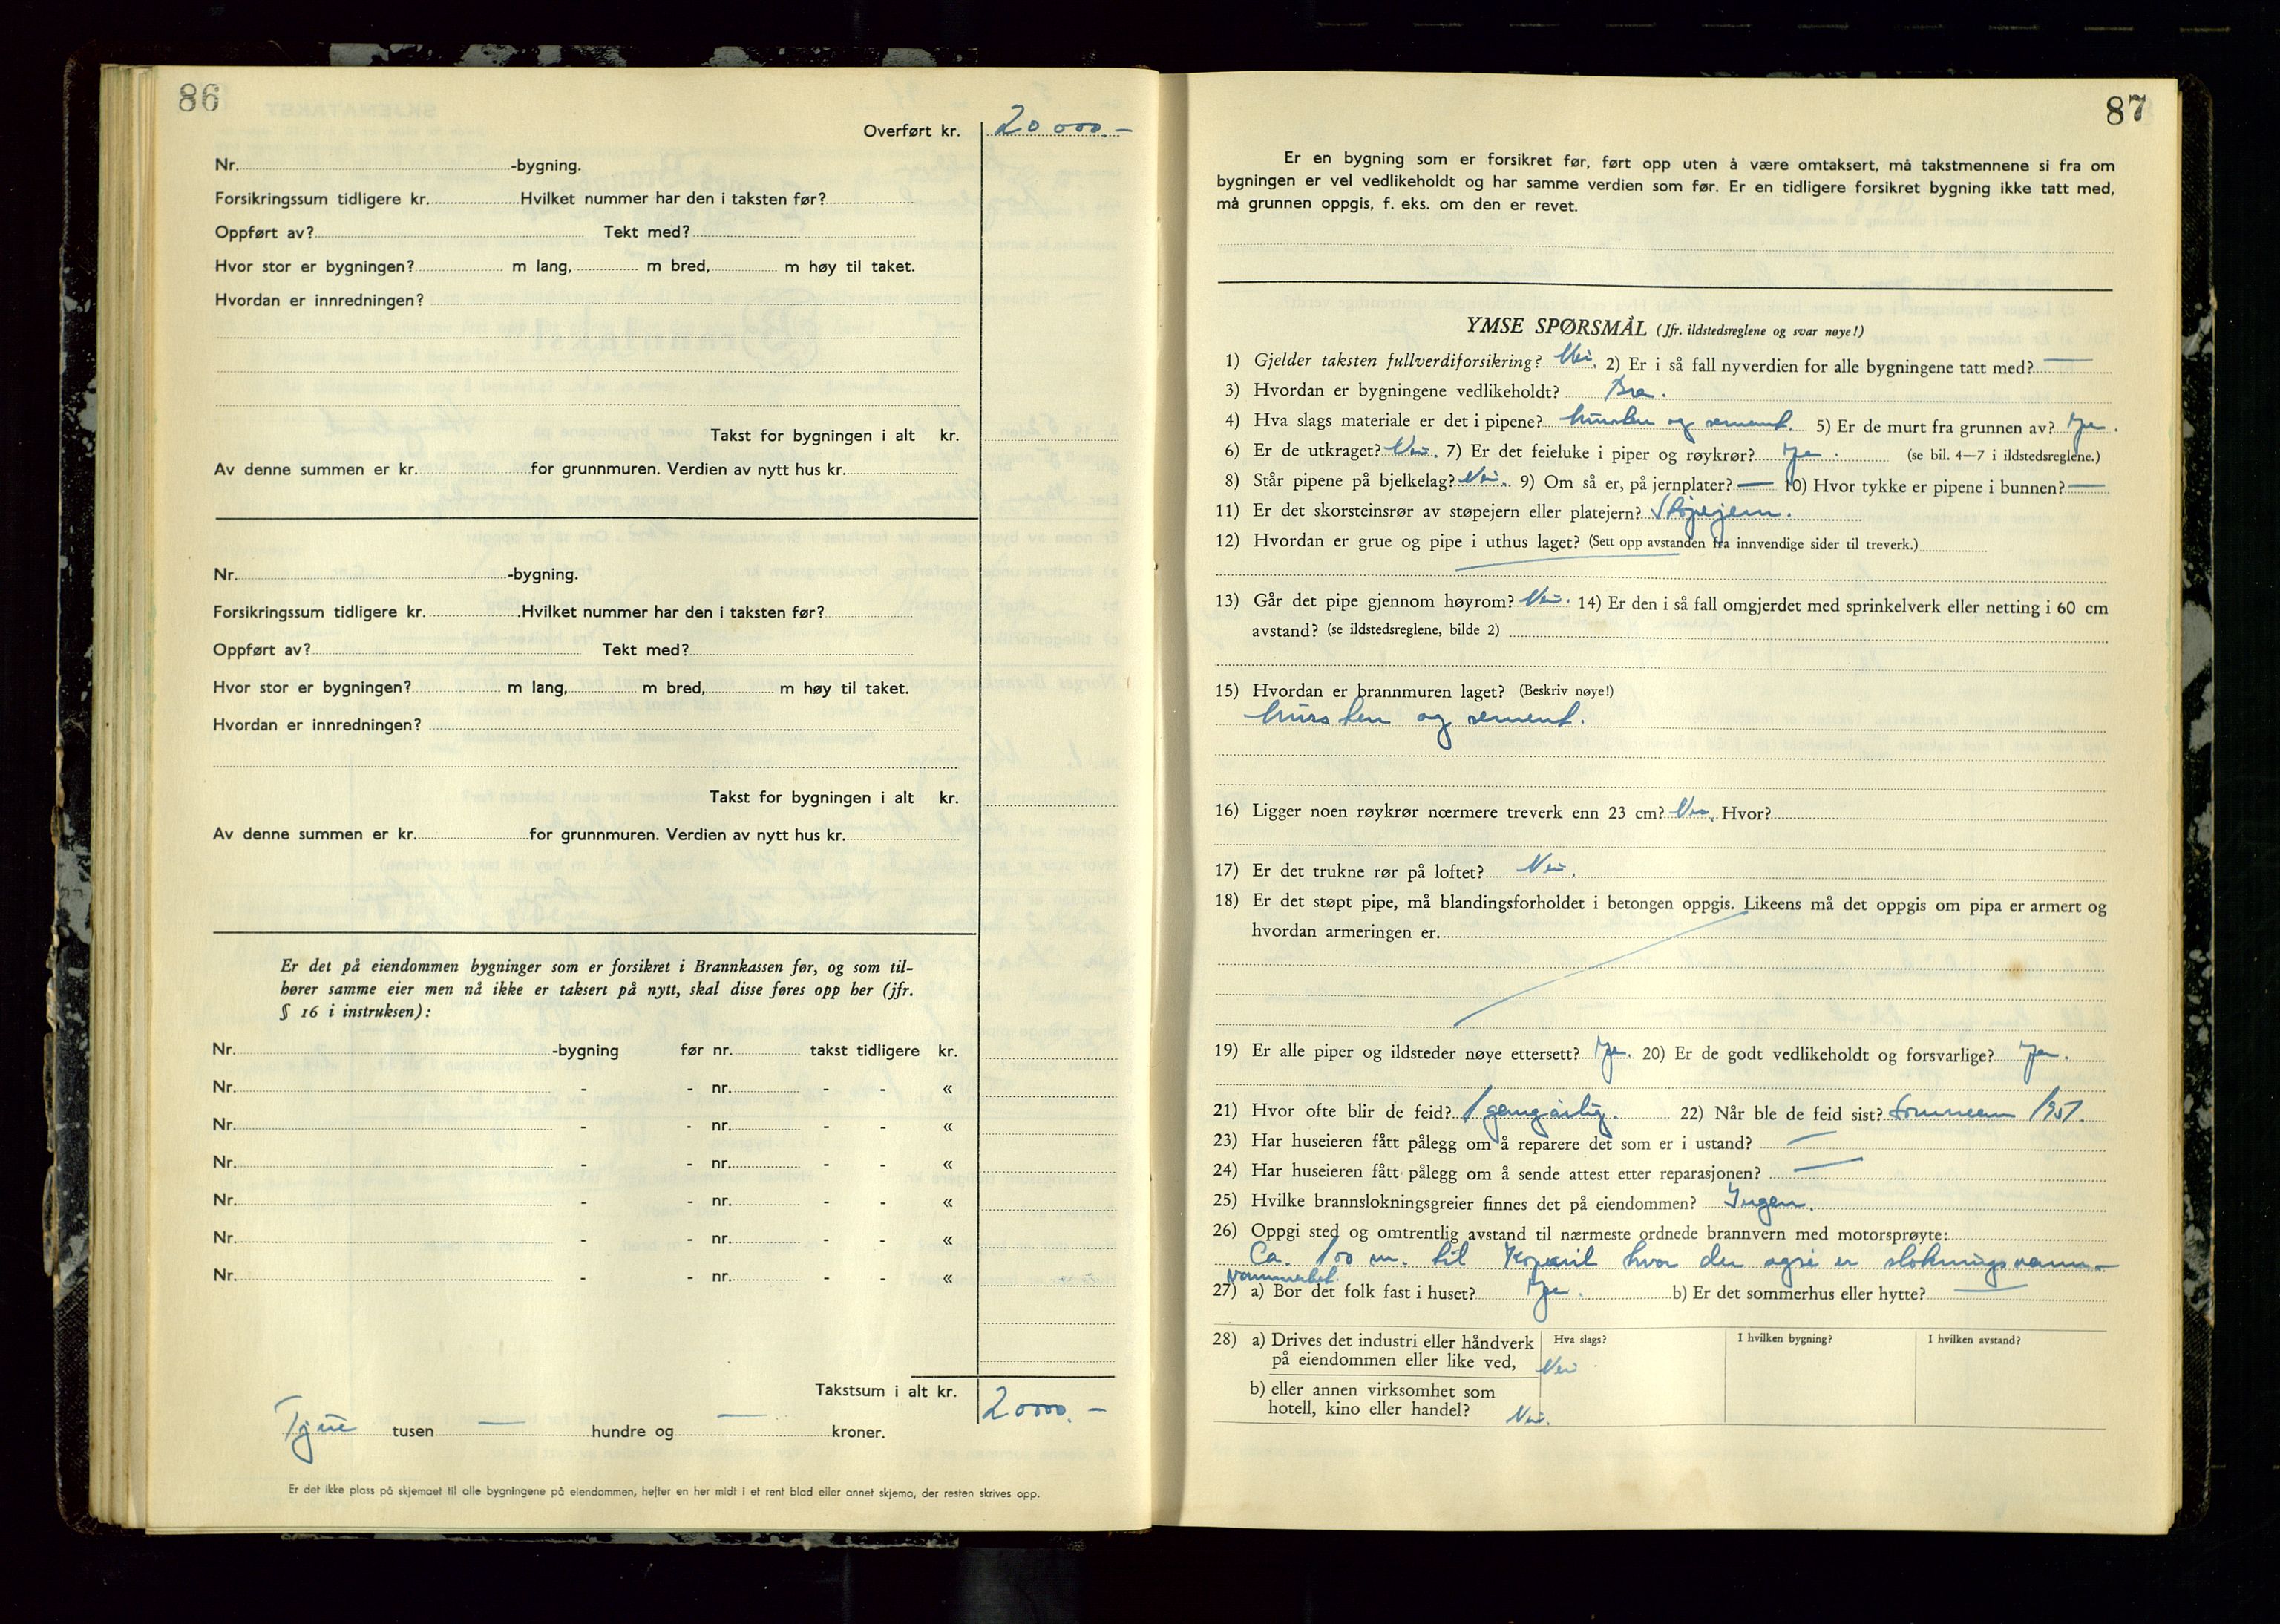 86
Overført kr. 20 000.-
Nr. -bygning.
Forsikringssum tidligere kr. Hvilket nummer har den i taksten før?
Oppført av? Tekt med?
Hvor stor er bygningen? m lang, m bred, m høy til taket.
Hvordan er innredningen?
Takst for bygningen i alt kr.
Av denne summen er kr. for grunnmuren. Verdien av nytt hus kr.
Nr. -bygning.
Forsikringssum tidligere kr. Hvilket nummer har den i taksten før?
Oppført av? Tekt med?
Hvor stor er bygningen? m lang, m bred, m høy til taket.
Hvordan er innredningen?
Takst for bygningen i alt kr.
Av denne summen er kr. for grunnmuren. Verdien av nytt hus kr.
Er det på eiendommen bygninger som er forsikret i Brannkassen før, og som til-
hører samme eier men nå ikke er taksert på nytt, skal disse føres opp her (jfr.
§ 16 i instruksen):
Nr. -bygning før nr. takst tidligere kr.
Nr. - - nr. - - «
Nr. - - nr. - - «
Nr. - - nr. - - «
Nr. - - nr. - - «
Nr. - - nr. - - «
Nr. - - nr. - - «
Takstsum i alt kr. 20000.-
Tjue tusen — hundre og — kroner.
Er det ikke plass på skjemaet til alle bygningene på eiendommen, hefter en her midt i et rent blad eller annet skjema, der resten skrives opp.
87
Er en bygning som er forsikret før, ført opp uten å være omtaksert, må takstmennene si fra om
bygningen er vel vedlikeholdt og har samme verdien som før. Er en tidligere forsikret bygning ikke tatt med,
må grunnen oppgis, f. eks. om den er revet.
YMSE SPØRSMÅL (Jfr. ildstedsreglene og svar nøye!)
1) Gjelder taksten fullverdiforsikring? Nei. 2) Er i så fall nyverdien for alle bygningene tatt med? —
3) Hvordan er bygningene vedlikeholdt? Bra.
4) Hva slags materiale er det i pipene? Mursten og sement. 5) Er de murt fra grunnen av? Ja.
6) Er de utkraget? Nei. 7) Er det feieluke i piper og røykrør? Ja. (se bil. 4—7 i ildstedsreglene.)
8) Står pipene på bjelkelag? Nei. 9) Om så er, på jernplater? — 10) Hvor tykke er pipene i bunnen? —
11) Er det skorsteinsrør av støpejern eller platejern? Støpejern.
12) Hvordan er grue og pipe i uthus laget? (Sett opp avstanden fra innvendige sider til treverk.)
—
13) Går det pipe gjennom høyrom? Nei. 14) Er den i så fall omgjerdet med sprinkelverk eller netting i 60 cm
avstand? (se ildstedsreglene, bilde 2)
15) Hvordan er brannmuren laget? (Beskriv nøye!)
Mursten og sement.
16) Ligger noen røykrør nœrmere treverk enn 23 cm? Nei. Hvor?
17) Er det trukne rør på loftet? Nei.
18) Er det støpt pipe, må blandingsforholdet i betongen oppgis. Likeens må det oppgis om pipa er armert og
hvordan armeringen er.
19) Er alle piper og ildsteder nøye ettersett? Ja. 20) Er de godt vedlikeholdt og forsvarlige? Ja.
21) Hvor ofte blir de feid? 1 gang årlig. 22) Når ble de feid sist? Sommeren 1951.
23) Har huseieren fått pålegg om å reparere det som er i ustand? —
24) Har huseieren fått pålegg om å sende attest etter reparasjonen? —
25) Hvilke brannslokningsgreier finnes det på eiendommen? Ingen.
26) Oppgi sted og omtrentlig avstand til nærmeste ordnede brannvern med motorsprøyte:
Ca. 100 m. til hvor der også er slokningsvann-
27) a) Bor det folk fast i huset? Ja. b) Er det sommerhus eller hytte? —
28) a) Drives det industri eller håndverk Hva slags? I hvilken bygning? I hvilken avstand?
på eiendommen eller like ved, Nei
b) eller annen virksomhet som
hotell, kino eller handel? Nei.